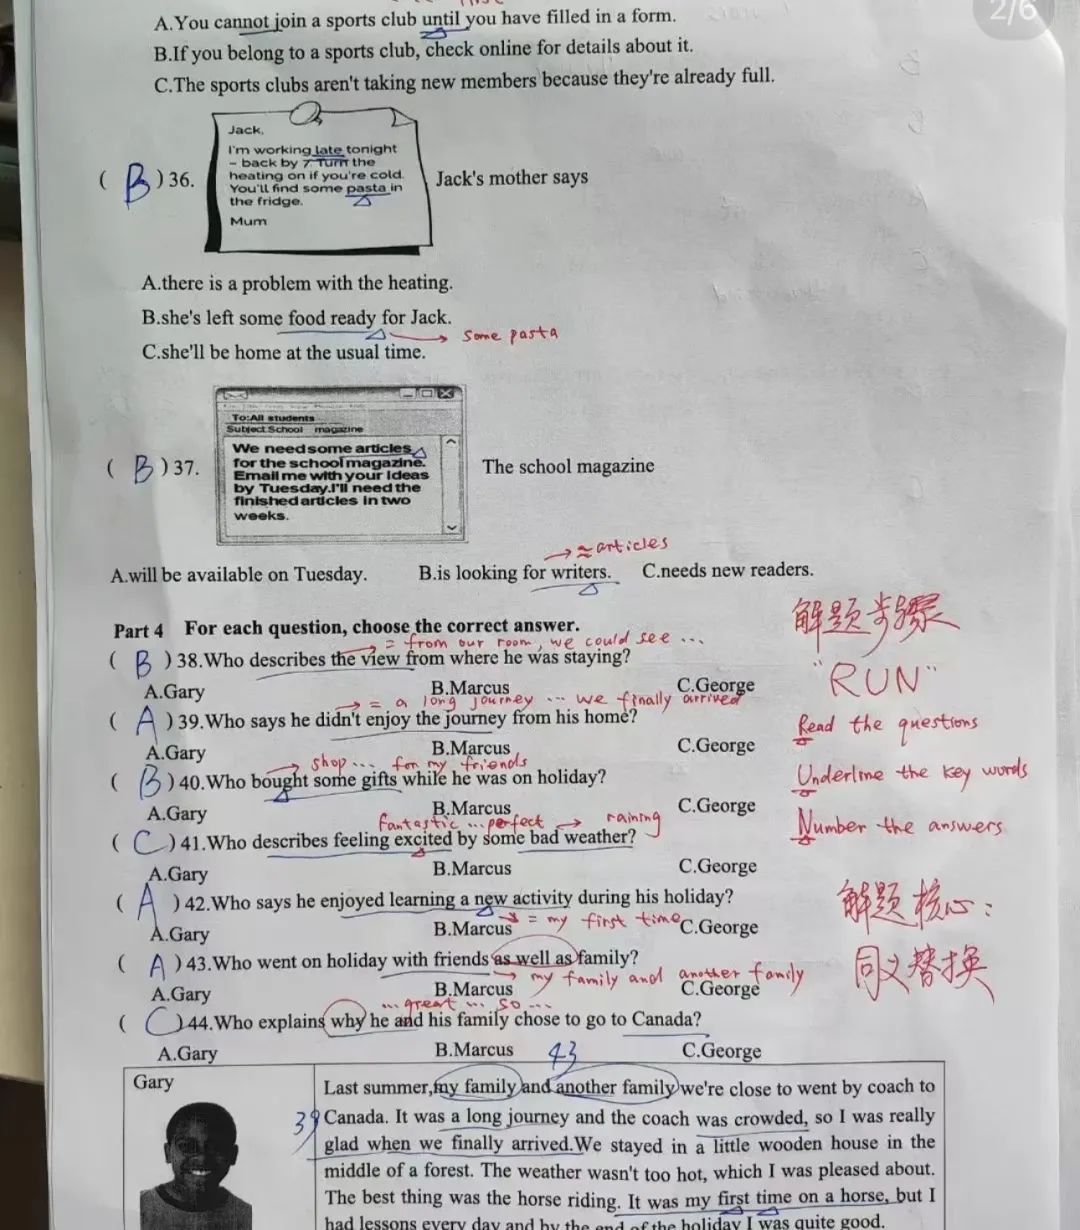 2/6
A.You cannot join a sports club until you have filled in a form.
B.If you belong to a sports club, check online for details about it.
C.The sports clubs aren't taking new members because they're already full.
Jack,
I'm working late tonight
– back by 7. Turn the
heating on if you're cold.
You'll find some pasta in
the fridge.
Mum
( B ) 36.
Jack's mother says
A.there is a problem with the heating.
B.she's left some food ready for Jack.
some pasta
C.she'll be home at the usual time.
To:All students
Subject:School magazine
We need some articles
for the school magazine.
Email me with your ideas
by Tuesday.I'll need the
finished articles in two
weeks.
( B ) 37.
The school magazine
≈ articles
A.will be available on Tuesday. B.is looking for writers. C.needs new readers.
解题步骤
Part 4 For each question, choose the correct answer.
= from our room, we could see ...
( B ) 38.Who describes the view from where he was staying?
"RUN"
A.Gary B.Marcus C.George
= a long journey ... we finally arrived
( A ) 39.Who says he didn't enjoy the journey from his home?
Read the questions
A.Gary B.Marcus C.George
shop ... for my friends
( B ) 40.Who bought some gifts while he was on holiday?
Underline the key words
A.Gary B.Marcus C.George
fantastic ... perfect → raining
( C ) 41.Who describes feeling excited by some bad weather?
Number the answers
A.Gary B.Marcus C.George
( A ) 42.Who says he enjoyed learning a new activity during his holiday?
解题核心:
= my first time
A.Gary B.Marcus C.George
( A ) 43.Who went on holiday with friends as well as family?
同义替换
my family and another family
A.Gary B.Marcus C.George
... great ... so ...
( C ) 44.Who explains why he and his family chose to go to Canada?
A.Gary B.Marcus C.George
43
Gary
Last summer,my family and another family we're close to went by coach to
39 Canada. It was a long journey and the coach was crowded, so I was really
glad when we finally arrived.We stayed in a little wooden house in the
middle of a forest. The weather wasn't too hot, which I was pleased about.
The best thing was the horse riding. It was my first time on a horse, but I
had lessons every day and by the end of the holiday I was quite good.